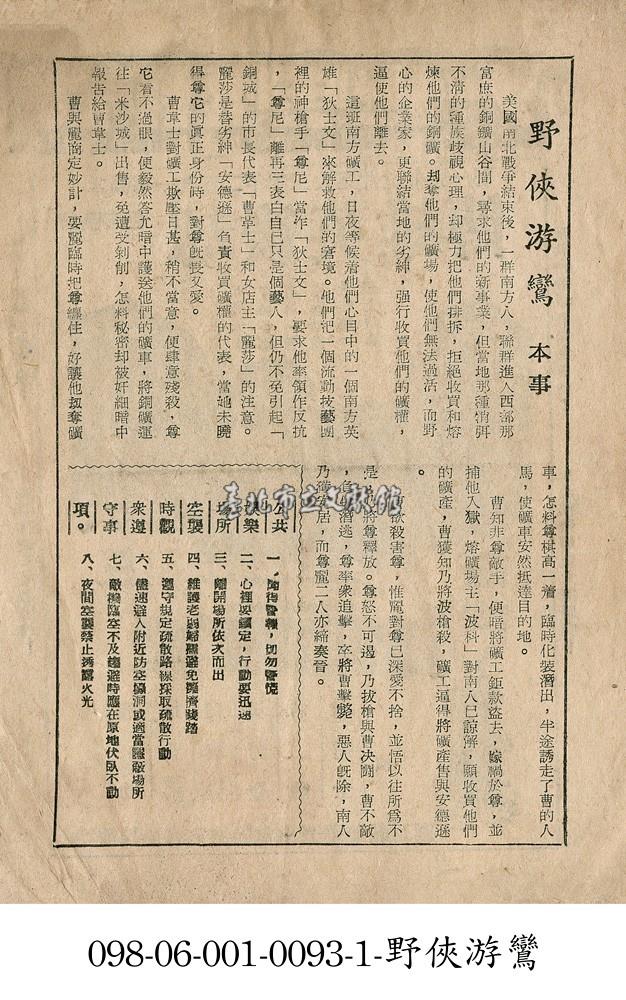 野俠游鸞 本事
美國南北戰爭結束後，一群南方人，聯群進入西部那
富庶的銅鑛山谷間，尋求他們的新事業，但當地那種消弭
不清的種族歧視心理，却極力把他們排拆，拒絕收買和熔
煉他們的銅礦。刧奪他們的礦場，使他們無法過活，而野
心的企業家，更聯結當地的劣紳，强行收買他們的礦權，
逼使他們離去。
這班南方礦工，日夜等候着他們心目中的一個南方英
雄「狄士文」來解救他們的窘境。他們把一個流動技藝團
裡的神槍手「尊尼」當作「狄士文」，要求他率領作反抗
，「尊尼」雖再三表白自己只是個藝人，但仍不免引起「
銅城」的市長代表「曹草士」和女店主「麗莎」的注意。
麗莎是替劣紳「安德遜」負責收買礦權的代表，當她未曉
得尊它的真正身份時，對尊旣畏又愛。
曹草士對礦工欺壓日甚，稍不當意，便肆意殘殺，尊
它看不過眼，便毅然答允暗中護送他們的礦車，將銅礦運
往「米沙城」出售，免遭受剝削，怎料秘密却被奸細暗中
報告給曹草士。
曹與麗商定妙計，要麗臨時把尊纏住，好讓他刼奪礦
車，怎料尊棋高一着，臨時化裝潛出，半途誘走了曹的人
馬，使礦車安然抵達目的地。
曹知非尊敵手，便暗將礦工鉅款盜去，嫁禍於尊，並
捕他入獄，熔礦場主「波科」對南人已諒解，願收買他們
的礦產，曹獲知乃將波槍殺，礦工逼得將礦產售與安德遜
。
欲殺害尊，惟麗對尊已深愛不捨，並悟以往所為不
是將尊釋放。尊怒不可遏，乃拔槍與曹决鬪，曹不敵
，急潛逃，尊率衆追擊，卒將曹擊斃，惡人旣除，南人
乃獲居，而尊麗二人亦締奏晉。
公共
樂
場所
空襲
時觀
衆遵
守事
項。
一、聞得警報，切勿警慌
二、心裡要鎮定，行動要迅速
三、離開場所依次而出
四、維護老弱婦孺避免擁擠踐踏
五、遵守規定疏散路線採取疏散行動
六、儘速避入附近防空壕洞或適當蔭蔽場所
七、敵機臨空不及趨避時應在原地伏臥不動
八、夜間空襲禁止透露火光
臺北市立文獻館
098-06-001-0093-1-野俠游鸞